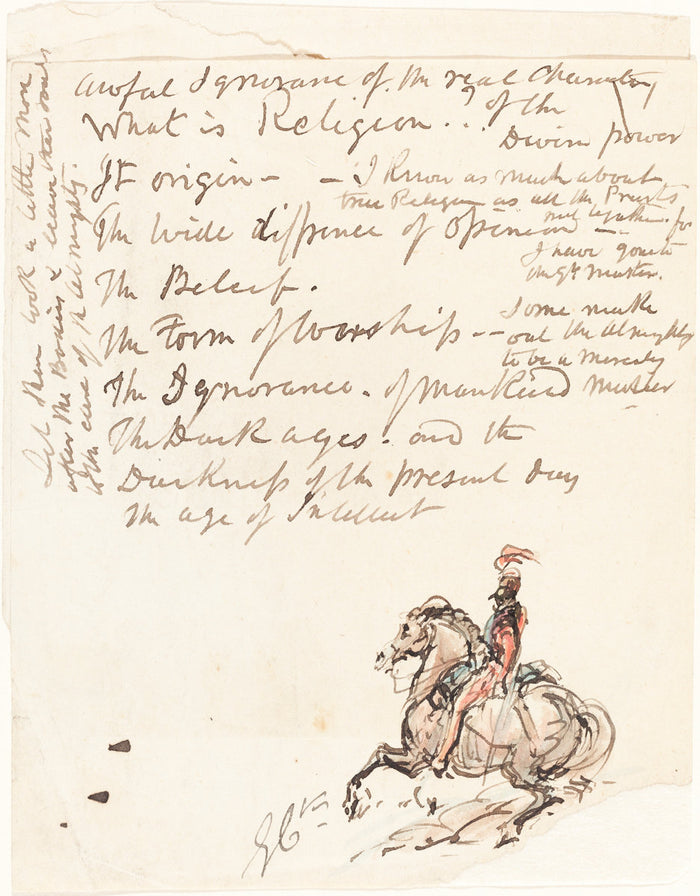 awful Ignorance of the real Character
of the
Divine power
What is Religion..?
It origin — — I Know as much about
true Religion as all the Priests
put together. for
I have gone to
the Gt Master.
The wide diffrence of Opinion —
The Beleif.
The Form of Worship — — Some make
out the Almighty
to be a Mercely
Master
The Ignorance. of Mankind
The Dark ages. and the
Darkness of the present day
the age of Intellect
Let them look a little more
after the Bodies & leave their souls
to the care of the Almighty.